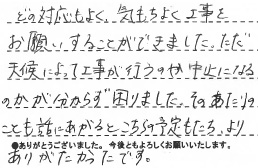 どの対応もよく、気もちよく工事を
お願いすることができました。ただ
天候によって工事が行うのか中止になる
のかが分からず困りました。そのあたりの
ことも話にあがるとこちらの予定もたち、より
●ありがとうございました。今後ともよろしくお願いいたします。
ありがたかったです。